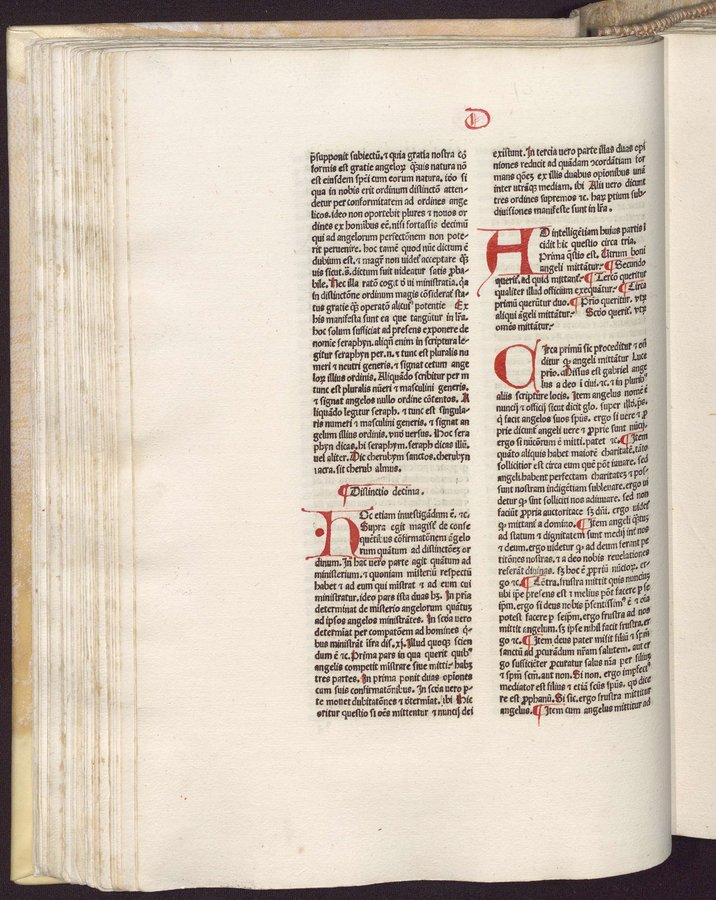 D
p̄supponit subiectū. ⁊ quia gratia nostra cō
formis est gratie angeloꝝ q̄uis natura nō
est eiusdem sp̄ei cum eorum natura. iō̄o si
qua in nobis erit ordinum distinctō atten-
detur per conformitatem ad ordines ange
licos. ideo non oportebit plures ⁊ nouos or
dines ex homībus eē. nisi fortassis decimū
qui ad angelorum perfectōnem non pote-
rit peruenire. hoc tamē quod nūc dictum ē
dubium est. ⁊ magr̄ non videt̄ acceptare q̄̄
uis sicut.ꝟ. dictum sūit videatur satis ꝓba-
bile. Nec illa ratō cogit
in distinctōne ordinum magis cōsiderat̄ sta-
tus gratie q̄̄ operatō alicuiꝰ potentie Ex
his manifesta sunt ea que tangūtur in lr̄a.
hoc solum sufficiat ad presens exponere de
nomīe seraphyn. aliqn̄ enim in scriptura le-
gitur seraphyn per.n. ⁊ tunc est pluralis nu
meri ⁊ neutri generis. ⁊ signat cetum ange
loꝝ illius ordinis. Aliquādo scribitur per m
tunc est pluralis nūeri ⁊ masculini generis.
⁊ signat angelos nullo ordine cōtentos. A
liquādo legitur seraph. ⁊ tunc est singula-
ris numeri ⁊ masculini generis. ⁊ signat an
gelum illius ordinis. vno versus. Hoc sera
phyn dicas. hi seraphym. seraph dicas illū.
vel aliter. Dic cherubym sanctos. cherubyn
sacra. sit cherub almus.
¶ Distinctio decima.
HOc etiam inuestigādum ē. ⁊c.
Supra egit magist̄ de conse
quētibus cōfirmatōnem āgelo
rum quātum ad distinctōeꝫ or
dinum. In hac vero parte agit quātum ad
ministerium. ⁊ quoniam misteriū respectū
habet ⁊ ad eum qui mīstrat ⁊ ad eum cui
ministratur. ideo pars ista duas hꝫ. In pria
determinat de misterio angelorum quātuꝫ
ad ipsos angelos ministrātes. In scd̄a vero
determīat per compatōem ad homines q̄-
bus ministrāt īfra dis. xj. Illud quoqꝫ scien
dum ē ⁊c. Prima pars in qua querit quibꝰ
angelis competit mīstrare siue mitti. habꝫ
tres partes. In prima ponit duas opiones
cum suis confirmatōnibus. In scd̄a vero ꝑ-
te mouet dubitatōnes ⁊ determīat. ibi Hic
oritur questio si oēs mittentur ⁊ nuncij dei
existunt. In tercia vero parte illas duas opi
niones reducit ad quādam ꝯcordātiam for
mans qōeꝫ ex illis duabus opīonibus unā
inter utrāqꝫ mediam. ibi Alij vero dicunt
tres ordines supremos ⁊c. harꝝ ptium sub-
diuisiones manifeste sunt in lr̄a.
AD intelligētiam huius partis ī
cidit hic questio circa tria.
Prima qōstio est. Utrum boni
angeli mittātur. ¶ Secundo
querit̄. ad quid mittant̄. ¶ Tercō queritur
qualiter illud officium exequātur. ¶ Circa
primū querūtur duo. ¶ Prīo queritur. vtꝝ
aliqui āgeli mittātur. Scd̄o querit̄. vtꝝ
omēs mittātur.
CIrca primū sic proceditur ⁊ on̄
ditur ꝙ angeli mittātur Luce
prīo. Missus est gabriel ange
lus a deo ī ciui. ⁊c. ⁊ in pluribꝰ
alijs scripture locis. Item angelus nomē ē
nuncij ⁊ officij sicut dicit glo. super illō. ps.
q̄ facit angelos suos spūs. ergo si uere ⁊ ꝓ
prie dicunt̄ angeli uere ⁊ ꝓprie sunt nūcij.
ergo si nūcorum ē mitti. patet ⁊c. ¶ Item
quāto aliquis habet maiorē charitatē. tāto
sollicitior est circa eum quē pōt iuuare. sed
angeli habent perfectam charitateꝫ ⁊ pos-
sunt nostram indigētiam subleuare. ergo ui
detur ꝙ sint solliciti nos adiuuare. sed non
faciūt ꝓpria auctoritate sꝫ dn̄i. ergo videt̄
ꝙ mittant̄ a domino. ¶ Item angeli q̄̄tuꝫ
ad statum ⁊ dignitatem sunt medij int̄ nos
⁊ deum. ergo uidetur ꝙ ad deum ferant pe
titōnes nostras. ⁊ a deo nobis reuelationes
referāt diuinas. sꝫ hoc ē ꝓpriū nūcioꝝ. er-
go ⁊c. ¶ Cōtra. frustra mittit quis nuncium
ubi ip̄e presens est ⁊ melius pōt facere ꝑ se
ip̄m. ergo si deus nobis p̄sentissimꝰ ē ⁊ oīa
potest facere ꝑ seip̄m. ergo frustra ad nos
mittit angelum. sꝫ ip̄se nihil facit frustra. er
go ⁊c. ¶ Item deus pater misit filiū ⁊ sp̄m
sanctū ad ꝓcurādum nr̄am salutem. aut er
go sufficiēter ꝓcuratur salus nr̄a per filium
⁊ sp̄m scm̄. aut non. Si non. ergo imperfectꝰ
mediator est filius ⁊ etiā scūs sp̄ūs. qd̄ dice
re est ꝓphanū. Si sic. ergo frustra mittitur
angelus. ¶ Item cum angelus mittitur ad